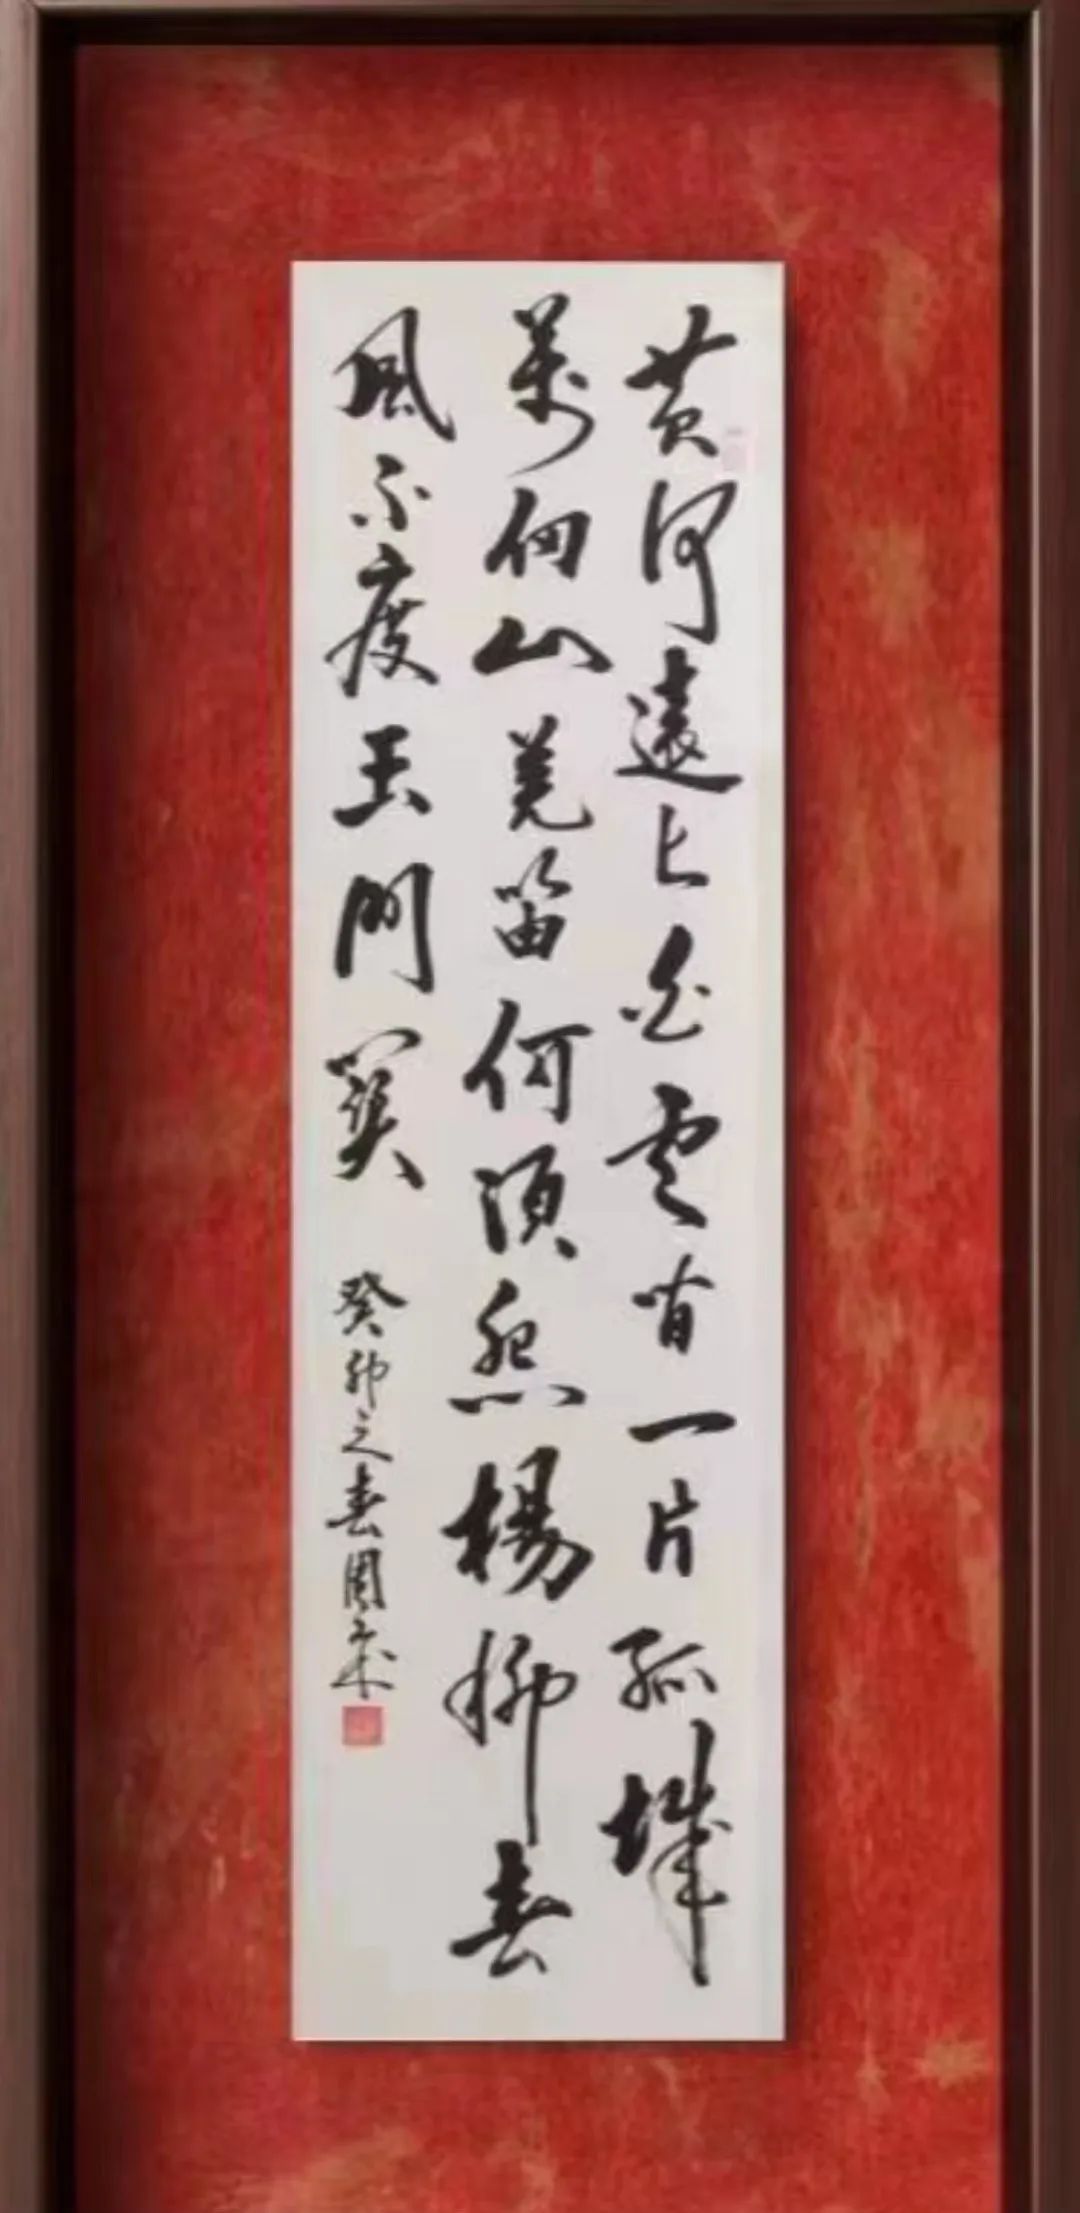 黄河遠上白雲間一片孤城
萬仞山羌笛何須怨楊柳春
風不度玉門關
癸卯之春